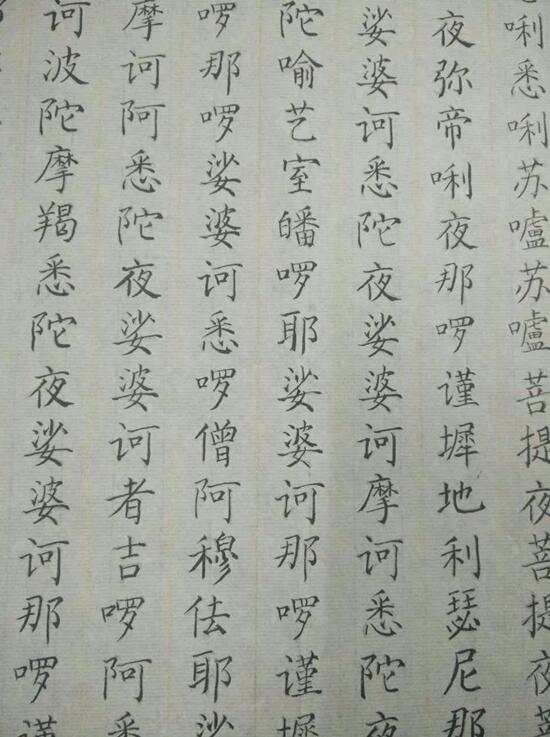 唎悉唎苏嚧苏嚧菩提夜菩提夜菩
夜弥帝唎夜那啰谨墀地利瑟尼那
娑婆诃悉陀夜娑婆诃摩诃悉陀夜
陀喻艺室皤啰耶娑婆诃那啰谨墀
啰那啰娑婆诃悉啰僧阿穆佉耶娑
摩诃阿悉陀夜娑婆诃者吉啰阿悉
诃波陀摩羯悉陀夜娑婆诃那啰谨